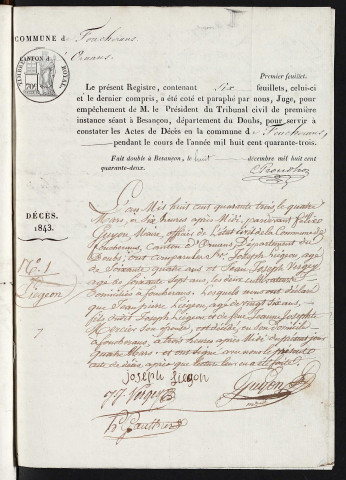 COMMUNE de Fouchrans
CANTON d'Ornans
TIMBRE ROYAL
Premier feuillet.
Le présent Registre, contenant six feuillets, celui-ci
et le dernier compris, a été coté et paraphé par nous, Juge, pour
empêchement de M. le Président du Tribunal civil de première
instance séant à Besançon, département du Doubs, pour servir à
constater les Actes de Décès en la commune de Fouchrans,
pendant le cours de l'année mil huit cent quarante-trois.
Fait double à Besançon, le huit décembre mil huit cent
quarante-deux.
DÉCÈS.
1843.
N.° 1
Liegeon
L'an Mil huit cent quarante trois, le quatre
Mars, à six heures après Midi, pardevant Nous
Guyon Maire, officier de l'état civil de la Commune de
Fouchrans, Canton d'Ornans Département du
Doubs; ont comparu Joseph Liegeon agé
de soixante quatre ans et Jean Joseph Vergey
agé de soixante sept ans, les deux cultivateurs
domiciliés à fouchrans; lesquels nous ont déclaré
que Jeanpierre Liegeon, agé de vingt six ans,
fils dudit Joseph Liegeon et de feue Jeanne Josephte
Mercier son épouse, est décédé, en son domicile
à fouchrans, à trois heures après Midi du présent jour
quatre Mars, et ont signé avec nous le présent
acte de décès, après que lecture leur en a été faite.
Joseph Liegon
JJ. Vergey
Guyon
Gauthier